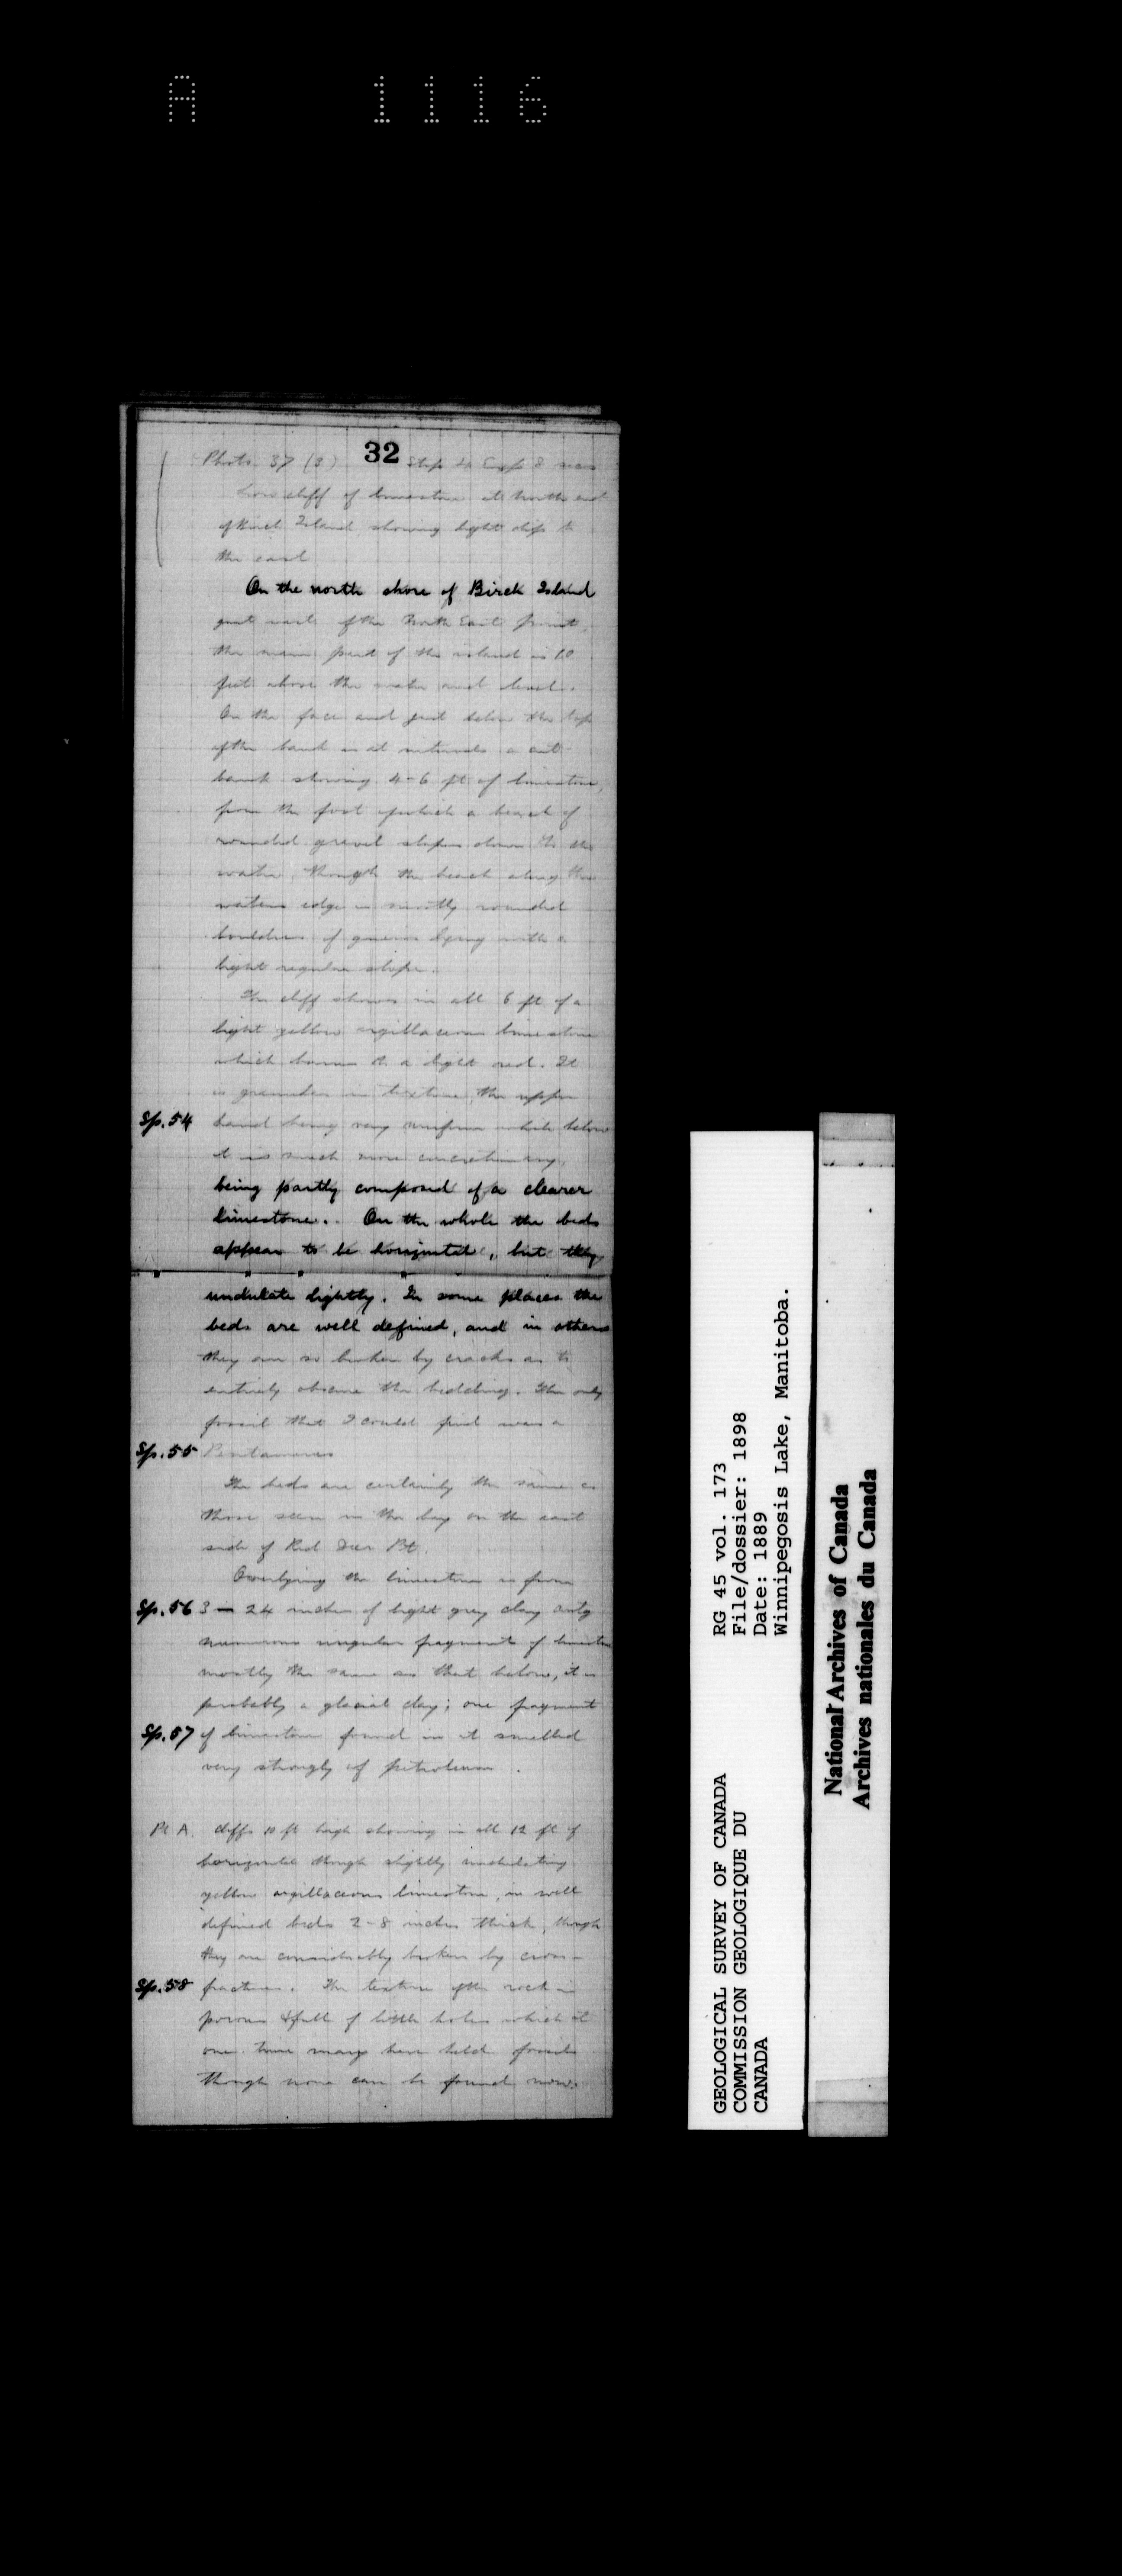 A 1116
32
Photo 37 (8) Stop 4 Exp 8 secs
Low cliff of limestone at North end
of Birch Island showing light dip to
the east
On the north shore of Birch Island
just west of the North East point,
the main part of the island is 10
feet above the water and level.
On the face and just below the top
of the bank is at intervals a cut
bank showing 4-6 ft of limestone,
from the foot of which a beach of
rounded gravel slopes down to the
water, though the beach along the
waters edge is mostly rounded
boulders of gneiss lying with a
light regular slope.
The cliff shows in all 6 ft of a
light yellow argillaceous limestone
which burns to a light red. It
is granular in texture, the upper
Sp. 54 band being very uniform while below
it is much more concretionary,
being partly composed of a clearer
limestone. On the whole the beds
appear to be horizontal, but they
undulate lightly. In some places the
beds are well defined, and in others
they are so broken by cracks as to
entirely obscure the bedding. The only
fossil that I could find was a
Sp. 55 Pentamerus
The beds are certainly the same as
those seen in the bay on the east
side of Red Deer Pt.
Overlying the limestone is from
Sp. 56 3 — 24 inches of light grey clay
numerous angular fragments of limestone
mostly the same as that below, it is
probably a glacial clay; one fragment
Sp. 57 of limestone found in it smelled
very strongly of petroleum.
Pt A. Cliffs 10 ft high showing in all 12 ft of
horizontal though slightly undulating
yellow argillaceous limestone, in well
defined beds 2-8 inches thick, though
they are considerably broken by cross-
Sp. 58 fractures. The texture of the rock is
porous & full of little holes which at
one time may have held fossils
though none can be found now.
GEOLOGICAL SURVEY OF CANADA
COMMISSION GEOLOGIQUE DU
CANADA
RG 45 vol. 173
File/dossier: 1898
Date: 1889
Winnipegosis Lake, Manitoba.
National Archives of Canada
Archives nationales du Canada